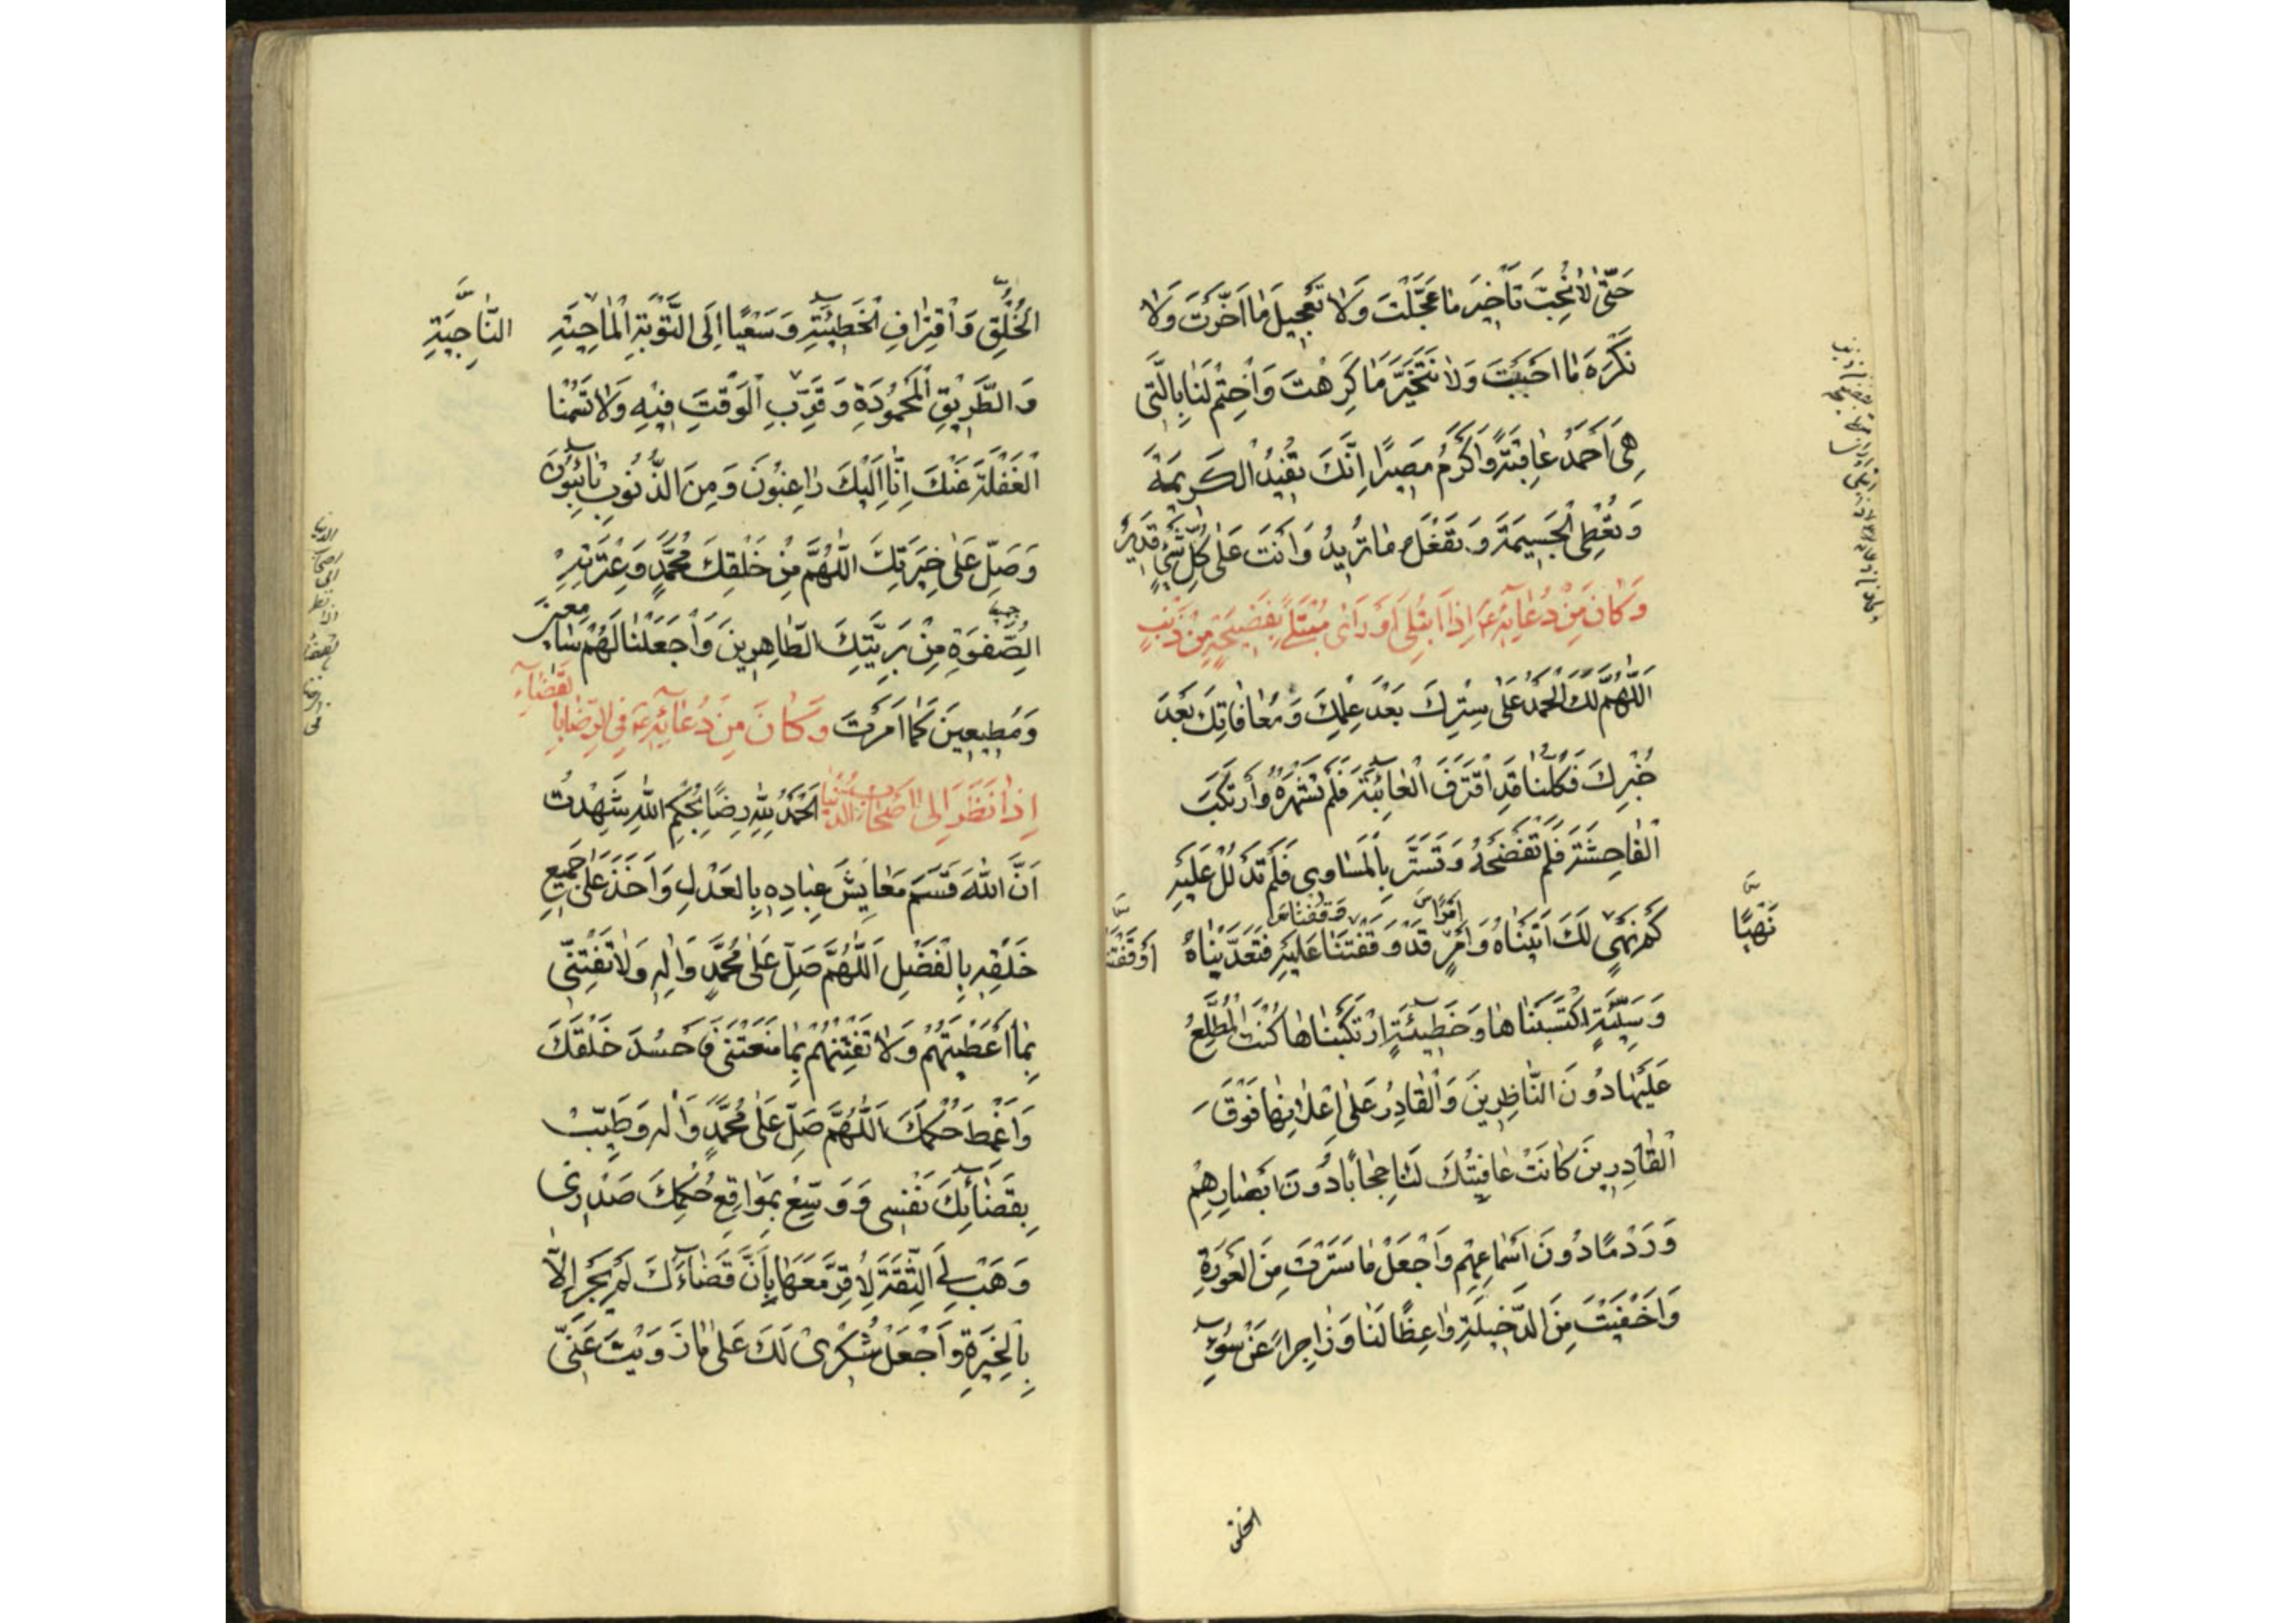 حَتّىٰ لَا نُحِبَّ تَأْخِيرَ مَا عَجَّلْتَ وَلَا تَعْجِيلَ مَا أَخَّرْتَ وَلَا
نَكْرَهَ مَا أَحْبَبْتَ وَلَا نَتَخَيَّرَ مَا كَرِهْتَ وَاخْتِمْ لَنَا بِالَّتِي
هِيَ أَحْمَدُ عَاقِبَةً وَأَكْرَمُ مَصِيرًا إِنَّكَ تُفِيدُ الْكَرِيمَةَ
وَتُعْطِي الْجَسِيمَةَ وَتَفْعَلُ مَا تُرِيدُ وَأَنْتَ عَلَىٰ كُلِّ شَيْءٍ قَدِيرٌ
وَكَانَ مِنْ دُعَائِهِ ع إِذَا ابْتُلِيَ أَوْ رَأَىٰ مُبْتَلًى بِفَضِيحَةٍ مِنْ ذَنْبٍ
اَللّٰهُمَّ لَكَ الْحَمْدُ عَلَىٰ سِتْرِكَ بَعْدَ عِلْمِكَ وَمُعَافَاتِكَ بَعْدَ
خُبْرِكَ فَكُلُّنَا قَدِ اقْتَرَفَ الْعَائِبَةَ فَلَمْ تَشْهَرْهُ وَارْتَكَبَ
الْفَاحِشَةَ فَلَمْ تَفْضَحْهُ وَتَسَتَّرَ بِالْمَسَاوِي فَلَمْ تَدْلُلْ عَلَيْهِ
كَمْ نَهْيٍ لَكَ أَتَيْنَاهُ وَأَمْرٍ قَدْ وَقَفْتَنَا عَلَيْهِ فَتَعَدَّيْنَاهُ
نَهْيًا
أَمْرًا
أَوْقَفْتَنَا
وَسَيِّئَةٍ اكْتَسَبْنَاهَا وَخَطِيئَةٍ ارْتَكَبْنَاهَا كُنْتَ الْمُطَّلِعَ
عَلَيْهَا دُونَ النَّاظِرِينَ وَالْقَادِرَ عَلَىٰ إِعْلَانِهَا فَوْقَ
الْقَادِرِينَ كَانَتْ عَافِيَتُكَ لَنَا حِجَابًا دُونَ أَبْصَارِهِمْ
وَرَدْمًا دُونَ أَسْمَاعِهِمْ وَاجْعَلْ مَا سَتَرْتَ مِنَ الْعَوْرَةِ
وَأَخْفَيْتَ مِنَ الدَّخِيلَةِ وَاعِظًا لَنَا وَزَاجِرًا عَنْ سُوءِ
الخلق
الْخُلُقِ وَاقْتِرَافِ الْخَطِيئَةِ وَسَعْيًا إِلَى التَّوْبَةِ الْمَاحِيَةِ
النَّاجِيَةِ
وَالطَّرِيْقِ الْمَحْمُودَةِ وَقَرِّبِ الْوَقْتَ فِيْهِ وَلَا تَسُمْنَا
الْغَفْلَةَ عَنْكَ إِنَّا إِلَيْكَ رَاغِبُونَ وَمِنَ الذُّنُوبِ تَائِبُونَ
وَصَلِّ عَلَىٰ خِيَرَتِكَ اللّٰهُمَّ مِنْ خَلْقِكَ مُحَمَّدٍ وَعِتْرَتِهِ
الصِّفْوَةِ مِنْ بَرِيَّتِكَ الطَّاهِرِينَ وَاجْعَلْنَا لَهُمْ سَامِعِينَ
وَمُطِيعِينَ كَمَا أَمَرْتَ وَكَانَ مِنْ دُعَائِهِ ع فِي الرِّضَا بِالْقَضَاءِ
إِذَا نَظَرَ إِلَىٰ أَصْحَابِ الدُّنْيَا الْحَمْدُ لِلّٰهِ رِضًا بِحُكْمِ اللّٰهِ شَهِدْتُ
أَنَّ اللّٰهَ قَسَمَ مَعَايِشَ عِبَادِهِ بِالْعَدْلِ وَأَخَذَ عَلَىٰ جَمِيعِ
خَلْقِهِ بِالْفَضْلِ اَللّٰهُمَّ صَلِّ عَلَىٰ مُحَمَّدٍ وَآلِهِ وَلَا تَفْتِنِّي
بِمَا أَعْطَيْتَهُمْ وَلَا تَفْتِنْهُمْ بِمَا مَنَعْتَنِي فَأَحْسُدَ خَلْقَكَ
وَأَغْمِطَ حُكْمَكَ اَللّٰهُمَّ صَلِّ عَلَىٰ مُحَمَّدٍ وَآلِهِ وَطَيِّبْ
بِقَضَائِكَ نَفْسِي وَوَسِّعْ بِمَوَاقِعِ حُكْمِكَ صَدْرِي
وَهَبْ لِيَ الثِّقَةَ لِأُقِرَّ مَعَهَا بِأَنَّ قَضَاءَكَ لَمْ يَجْرِ إِلَّا
بِالْخِيَرَةِ وَاجْعَلْ شُكْرِي لَكَ عَلَىٰ مَا زَوَيْتَ عَنِّي